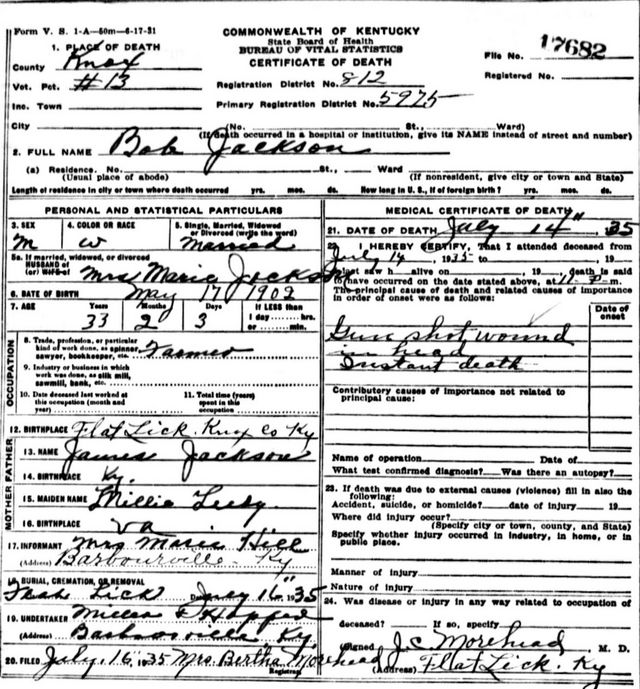 Form V. S. 1-A—50m—6-17-31
COMMONWEALTH OF KENTUCKY
State Board of Health
BUREAU OF VITAL STATISTICS
CERTIFICATE OF DEATH
File No. 17682
Registered No.
1. PLACE OF DEATH
County Knox
Vot. Pct. #13
Registration District No. 812
Inc. Town
Primary Registration District No. 5975
City (No. St., Ward)
(If death occurred in a hospital or institution, give its NAME instead of street and number)
2. FULL NAME Bob Jackson
(a) Residence. No. St., Ward
(Usual place of abode) (If nonresident, give city or town and State)
Length of residence in city or town where death occurred yrs. mos. ds. How long in U. S., if of foreign birth? yrs. mos. ds.
PERSONAL AND STATISTICAL PARTICULARS
3. SEX M
4. COLOR OR RACE W
5. Single, Married, Widowed or Divorced (write the word) Married
5a. If married, widowed, or divorced
HUSBAND of
(or) WIFE of Mrs Marie Jackson
6. DATE OF BIRTH May 17 1902
7. AGE Years 33 Months 2 Days 3 If LESS than
1 day hrs.
or min.
OCCUPATION
8. Trade, profession, or particular
kind of work done, as spinner,
sawyer, bookkeeper, etc. Farmer
9. Industry or business in which
work was done, as silk mill,
sawmill, bank, etc.
10. Date deceased last worked at
this occupation (month and
year)
11. Total time (years)
spent in this
occupation
12. BIRTHPLACE Flat Lick. Knox Co Ky
FATHER
13. NAME James Jackson
14. BIRTHPLACE Ky.
MOTHER
15. MAIDEN NAME Millie
16. BIRTHPLACE Va
17. INFORMANT Mrs Marie Hill
(Address) Barbourville Ky
18. BURIAL, CREMATION, OR REMOVAL
Lick Date July 16" 1935
19. UNDERTAKER
(Address) Barbourville Ky.
20. FILED July 16 1935 Mrs. Bertha Morehead
Registrar
MEDICAL CERTIFICATE OF DEATH
21. DATE OF DEATH July 14" 35
22. I HEREBY CERTIFY, That I attended deceased from
July 14 1935 to , 19
I last saw h alive on , 19 , death is said
to have occurred on the date stated above, at 11 P. m.
The principal cause of death and related causes of importance
in order of onset were as follows:
Date of
onset
Gun shot wound
in head
Instant death
Contributory causes of importance not related to
principal cause:
Name of operation Date of
What test confirmed diagnosis? Was there an autopsy?
23. If death was due to external causes (violence) fill in also the
following:
Accident, suicide, or homicide? date of injury 19
Where did injury occur?
(Specify city or town, county, and State)
Specify whether injury occurred in industry, in home, or in
public place.
Manner of injury
Nature of injury
24. Was disease or injury in any way related to occupation of
deceased? If so, specify
Signed J.C. Morehead M. D.
(Address) Flat Lick. Ky